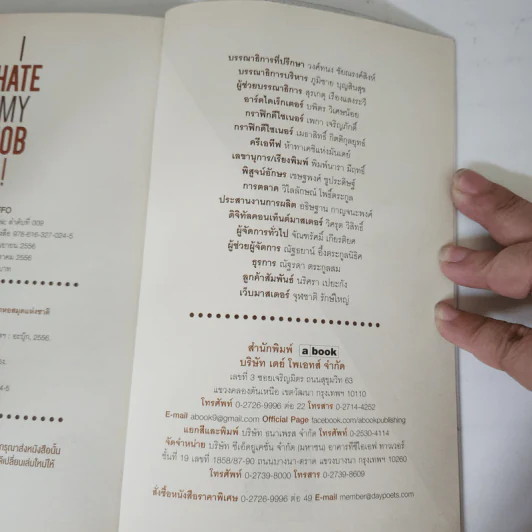 I
HATE
MY
JOB
!
NFO
ลำดับที่ 009
978-616-327-024-5
2556
2556
หอสมุดแห่งชาติ
2556.
กรุณาส่งหนังสือนั้น
เปลี่ยนเล่มใหม่ให้
บรรณาธิการที่ปรึกษา วงศ์ทนง ชัยณรงค์สิงห์
บรรณาธิการบริหาร ภูมิชาย บุญสินสุข
ผู้ช่วยบรรณาธิการ สุรเกตุ เรืองแสงระวี
อาร์ตไดเร็กเตอร์ บพิตร วิเศษน้อย
กราฟิกดีไซเนอร์ เพกา เจริญภักดิ์
กราฟิกดีไซเนอร์ เมธาสิทธิ์ กิตติกุลยุทธ์
ครีเอทีฟ
เลขานุการ/เรียงพิมพ์ พิมพ์นารา มีฤทธิ์
พิสูจน์อักษร เชษฐพงศ์ ชูประดิษฐ์
การตลาด วิไลลักษณ์ โพธิ์ตระกูล
ประสานงานการผลิต อธิษฐาน กาญจนะพงศ์
ดิจิทัลคอนเท็นต์มาสเตอร์ วิศรุต วิสิทธิ์
ผู้จัดการทั่วไป เกียรติยศ
ผู้ช่วยผู้จัดการ ณัฐธยาน์ อึ้งตระกูลนิธิศ
ธุรการ ณัฐรดา ตระกูลสม
ลูกค้าสัมพันธ์ นริศรา เปยะกัง
เว็บมาสเตอร์ จุฬชาติ รักษ์ใหญ่
สำนักพิมพ์ a book
บริษัท เดย์ โพเอทส์ จำกัด
เลขที่ 3 ซอยเจริญมิตร ถนนสุขุมวิท 63
แขวงคลองตันเหนือ เขตวัฒนา กรุงเทพฯ 10110
โทรศัพท์ 0-2726-9996 ต่อ 22 โทรสาร 0-2714-4252
E-mail abook9@gmail.com Official Page facebook.com/abookpublishing
แยกสีและพิมพ์ บริษัท ธนาเพรส จำกัด โทรศัพท์ 0-2530-4114
จัดจำหน่าย บริษัท ซีเอ็ดยูเคชั่น จำกัด (มหาชน) อาคารทีซีไอเอฟ ทาวเวอร์
ชั้นที่ 19 เลขที่ 1858/87-90 ถนนบางนา-ตราด แขวงบางนา กรุงเทพฯ 10260
โทรศัพท์ 0-2739-8000 โทรสาร 0-2739-8609
สั่งซื้อหนังสือราคาพิเศษ 0-2726-9996 ต่อ 49 E-mail member@daypoets.com